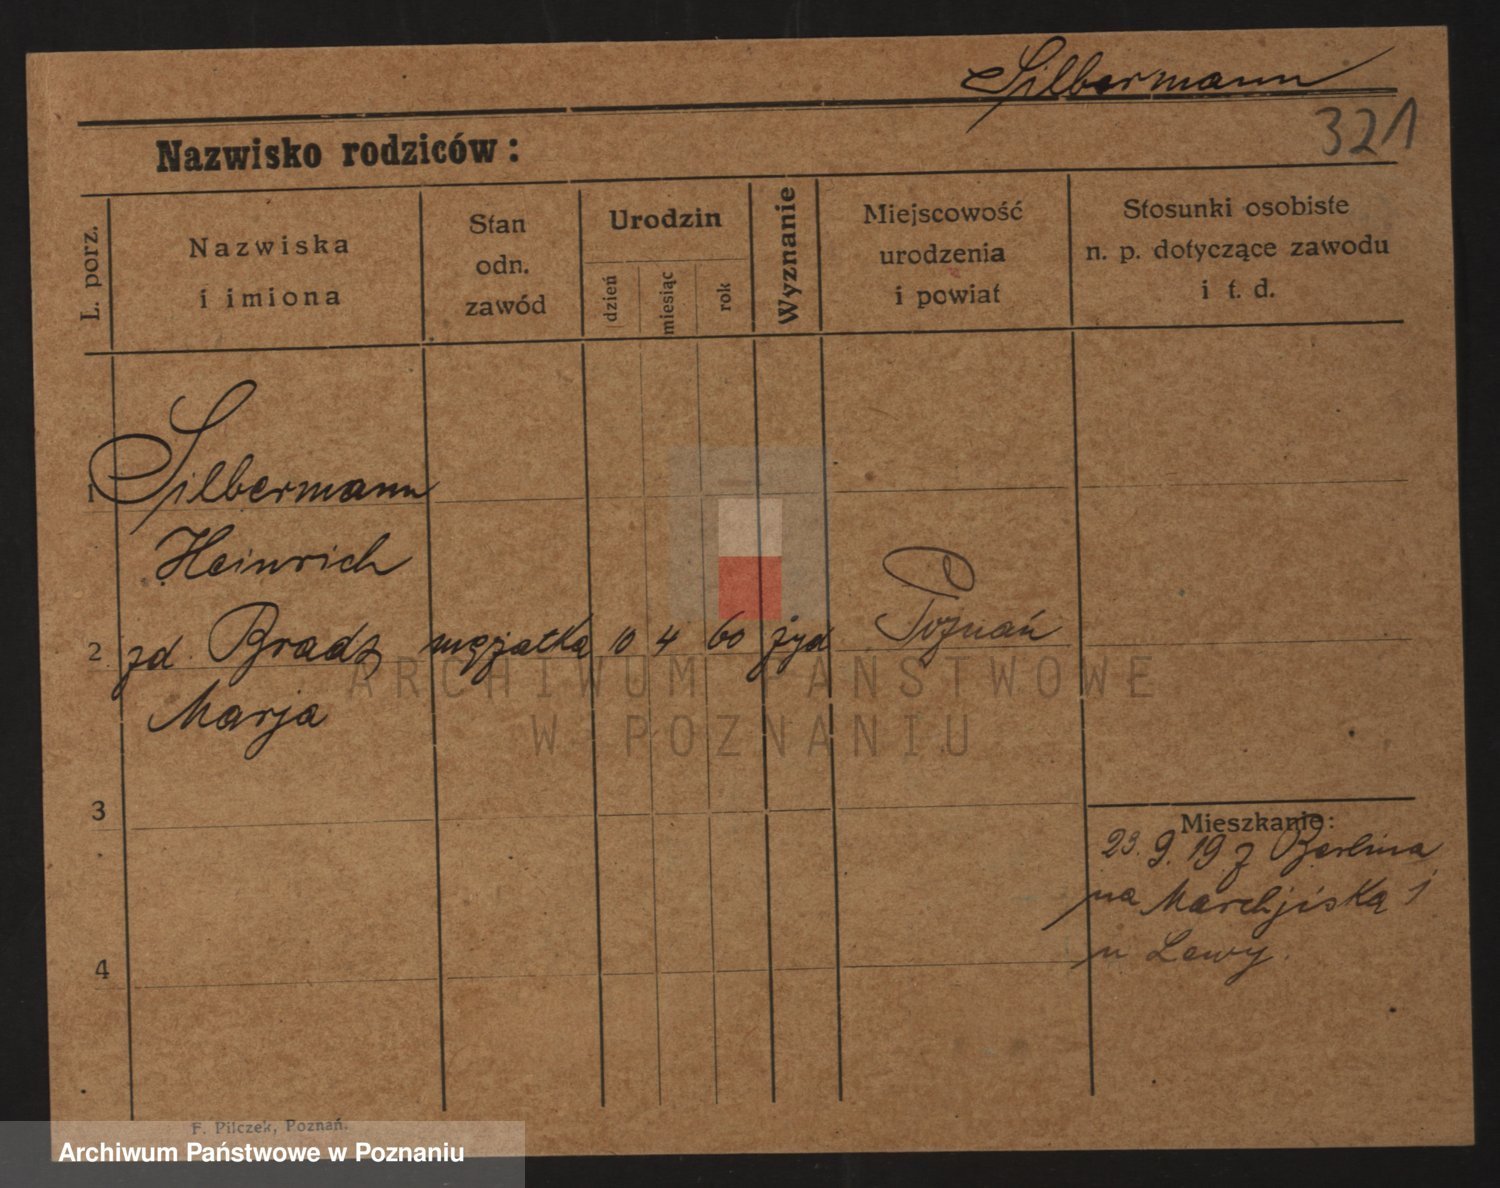 Silbermann
321
Nazwisko rodziców:
L. porz.
Nazwiska
i imiona
Stan
odn.
zawód
Urodzin
dzień
miesiąc
rok
Wyznanie
Miejscowość
urodzenia
i powiat
Stosunki osobiste
n. p. dotyczące zawodu
i t. d.
1 Silbermann
Heinrich
2 zd. Brads mężatka 10 4 60 żyd Poznań
Marja
3
4
Mieszkanie:
23. 9. 19 z Berlina
na Marchjiską 1
u Lewy.
F. Pilczek, Poznań.
ARCHIWUM PAŃSTWOWE
W POZNANIU
Archiwum Państwowe w Poznaniu